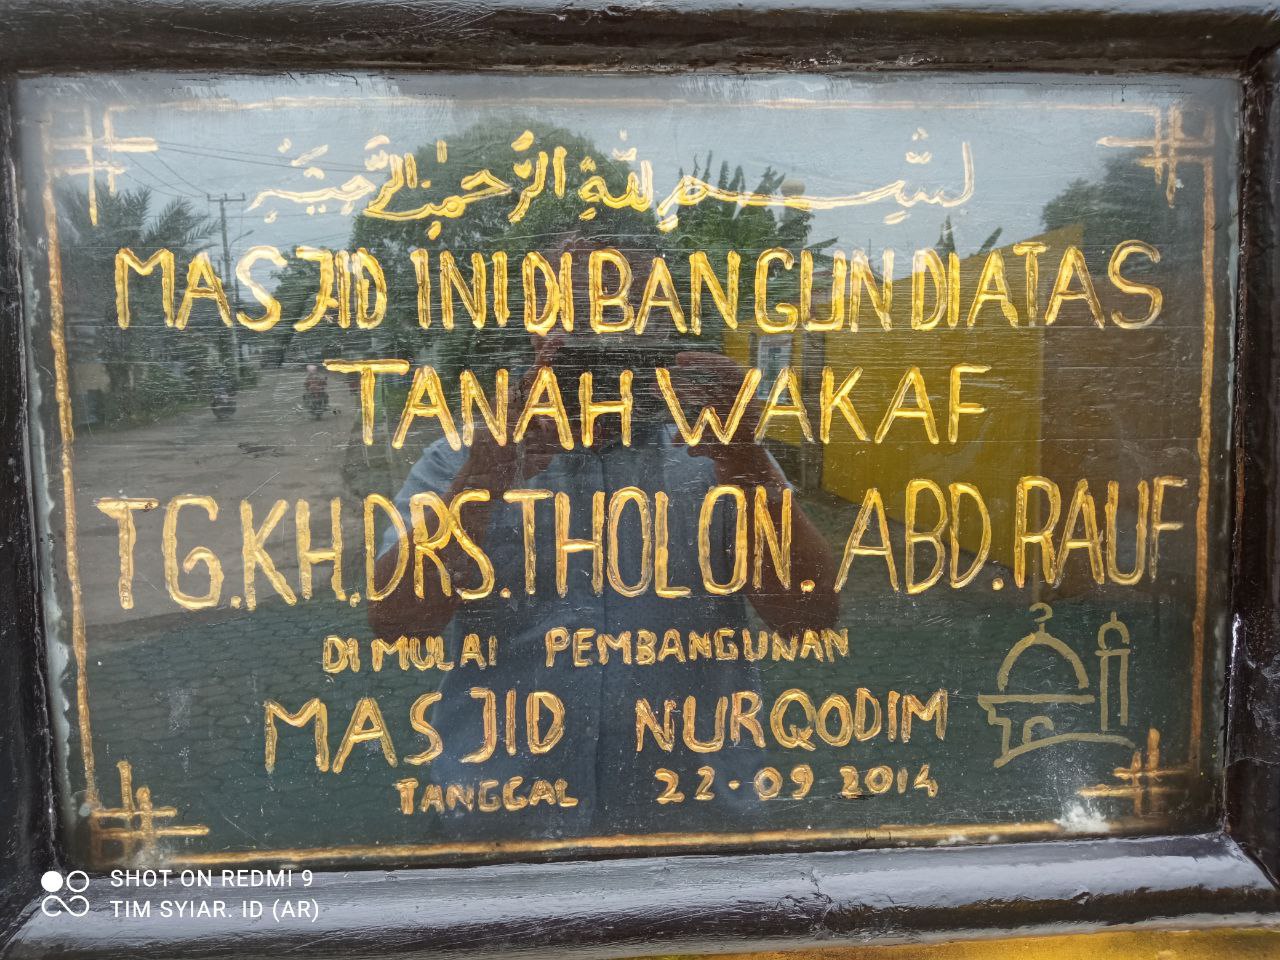 بسم الله الرحمن الرحيم
MASJID INI DI BANGUN DI ATAS
TANAH WAKAF
TG.KH.DRS.THOLON. ABD.RAUF
DI MULAI PEMBANGUNAN
MASJID NURQODIM
TANGGAL 22-09 2014
SHOT ON REDMI 9
TIM SYIAR. ID (AR)